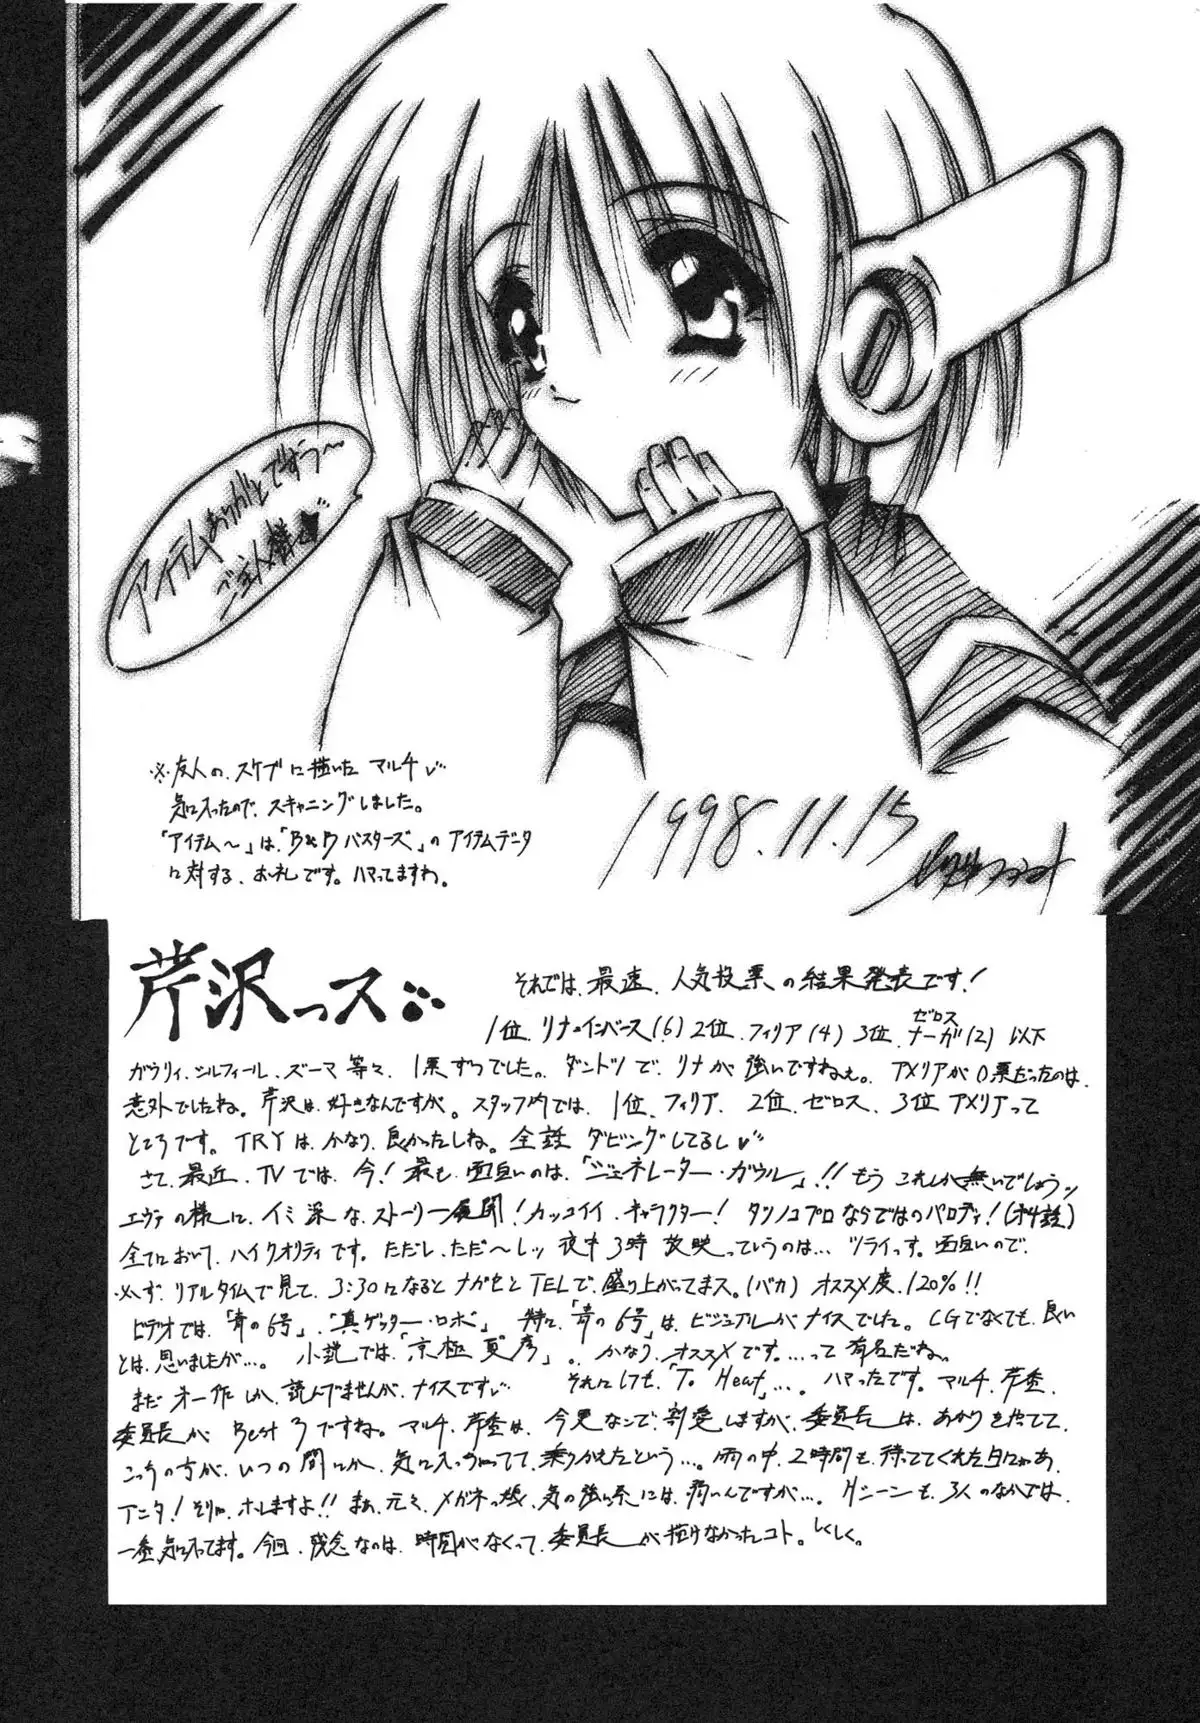 アイテムありがとですぅ〜
ご主人様♥
※友人の、スケブに描いた マルチ
気に入ったので、スキャニングしました。
「アイテム〜」は、「B&Dバスターズ」の アイテムデータ
に対する、お礼です。ハマってますわ。
1998.11.15
芹沢っス
それでは、最速、人気投票の結果発表です!
1位、リナ=インバース(6) 2位、フィリア(4) 3位、ゼロス ナーガ(2) 以下
ガウリィ、シルフィール、ズーマ 等々、1票ずつでした。ダントツで、リナが強いですねぇ。アメリアが0票だったのは、
意外でしたね。芹沢は、好きなんですが。スタッフ内では、1位、フィリア、2位、ゼロス、3位 アメリアって
ところです。TRYは、かなり、良かったしね。全話 ダビングしてるし
さて、最近、TVでは、今!最も、面白いのは、「ジェネレーター・ガウル」!!もう これしか無いでしょうッ
エヴァの様に、イミ深な、ストーリー展開!カッコイイ、キャラクター!タツノコプロならではのパロディ!(オ4話)
全てにおいて、ハイクオリティです。ただし、ただ〜しッ 夜中3時 放映っていうのは…ツライっす。面白いので、
必ず、リアルタイムで見て、3:30になると ナガセとTELで、盛り上がってまス。(バカ) オススメ度、120%!!
ビデオでは、「青の6号」、「真ゲッター・ロボ」 特に、「青の6号」は、ビジュアルがナイスでした。CGでなくても、良い
とは、思いましたが…。小説では、「京極 夏彦」。かなり、オススメです。…って 有名だね。
まだ オ一作しか、読んでませんが、ナイスです それにしても、「To Heart」…。ハマったです。マルチ、芹香、
委員長が Best 3ですね。マルチ、芹香は、今更なので、割愛しますが、委員長は、あかりを捨てて、
こっちの方が、いつの間にか、気に入っちゃってて、乗りかえたという…。雨の中、2時間も、待っててくれた日にゃあ、
アニタ!そりゃ、ホレますよ!!まあ、元々、メガネっ娘、気の強い系には、弱いんですが…。Hシーンも、3人のなかでは、
一番、気に入ってます。今回、残念なのは、時間がなくって、委員長が描けなかったコト。しくしく。